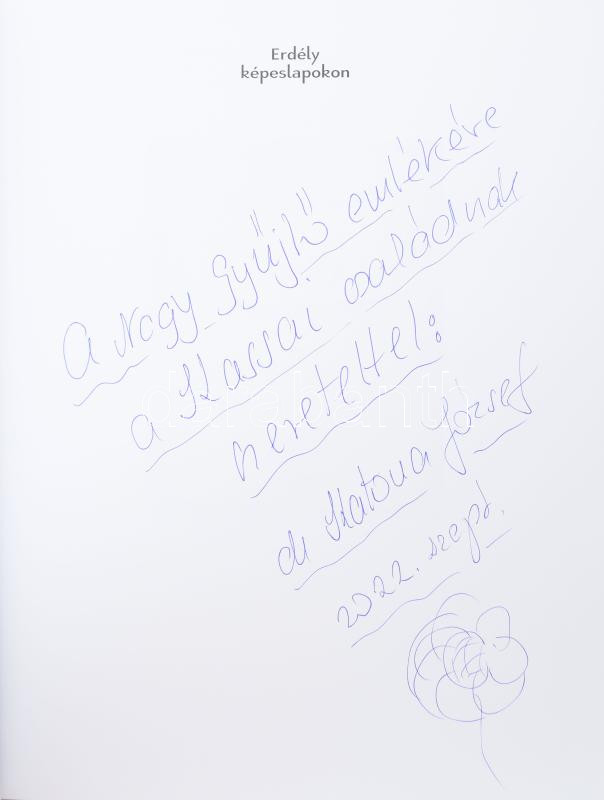 Erdély
képeslapokon
A Nagy Gyűjtő emlékére
a Kassai családnak
szeretettel:
dr Katona József
2022. szept.
darabanth